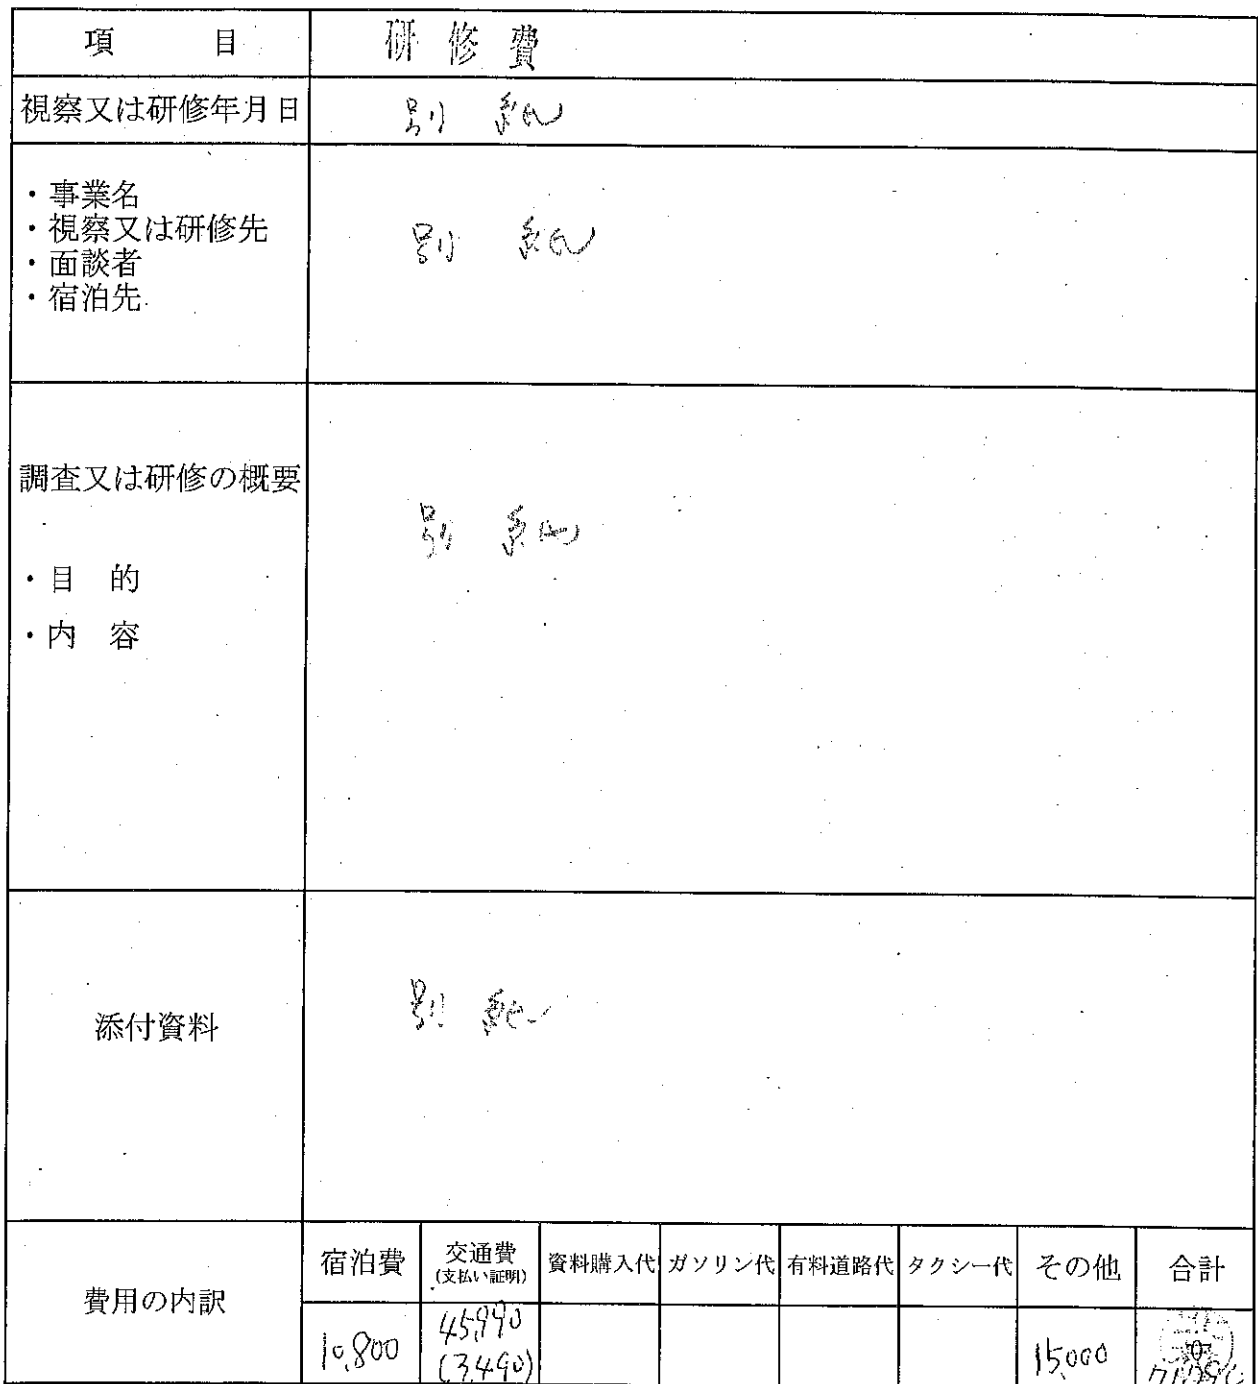 項 目 研修費
視察又は研修年月日 別 紙
・事業名
・視察又は研修先
・面談者
・宿泊先
別 紙
調査又は研修の概要
・目 的
・内 容
別 紙
添付資料 別 紙
費用の内訳
宿泊費 交通費 資料購入代 ガソリン代 有料道路代 タクシー代 その他 合計
(支払い証明)
10,800 15,000
(3,490)